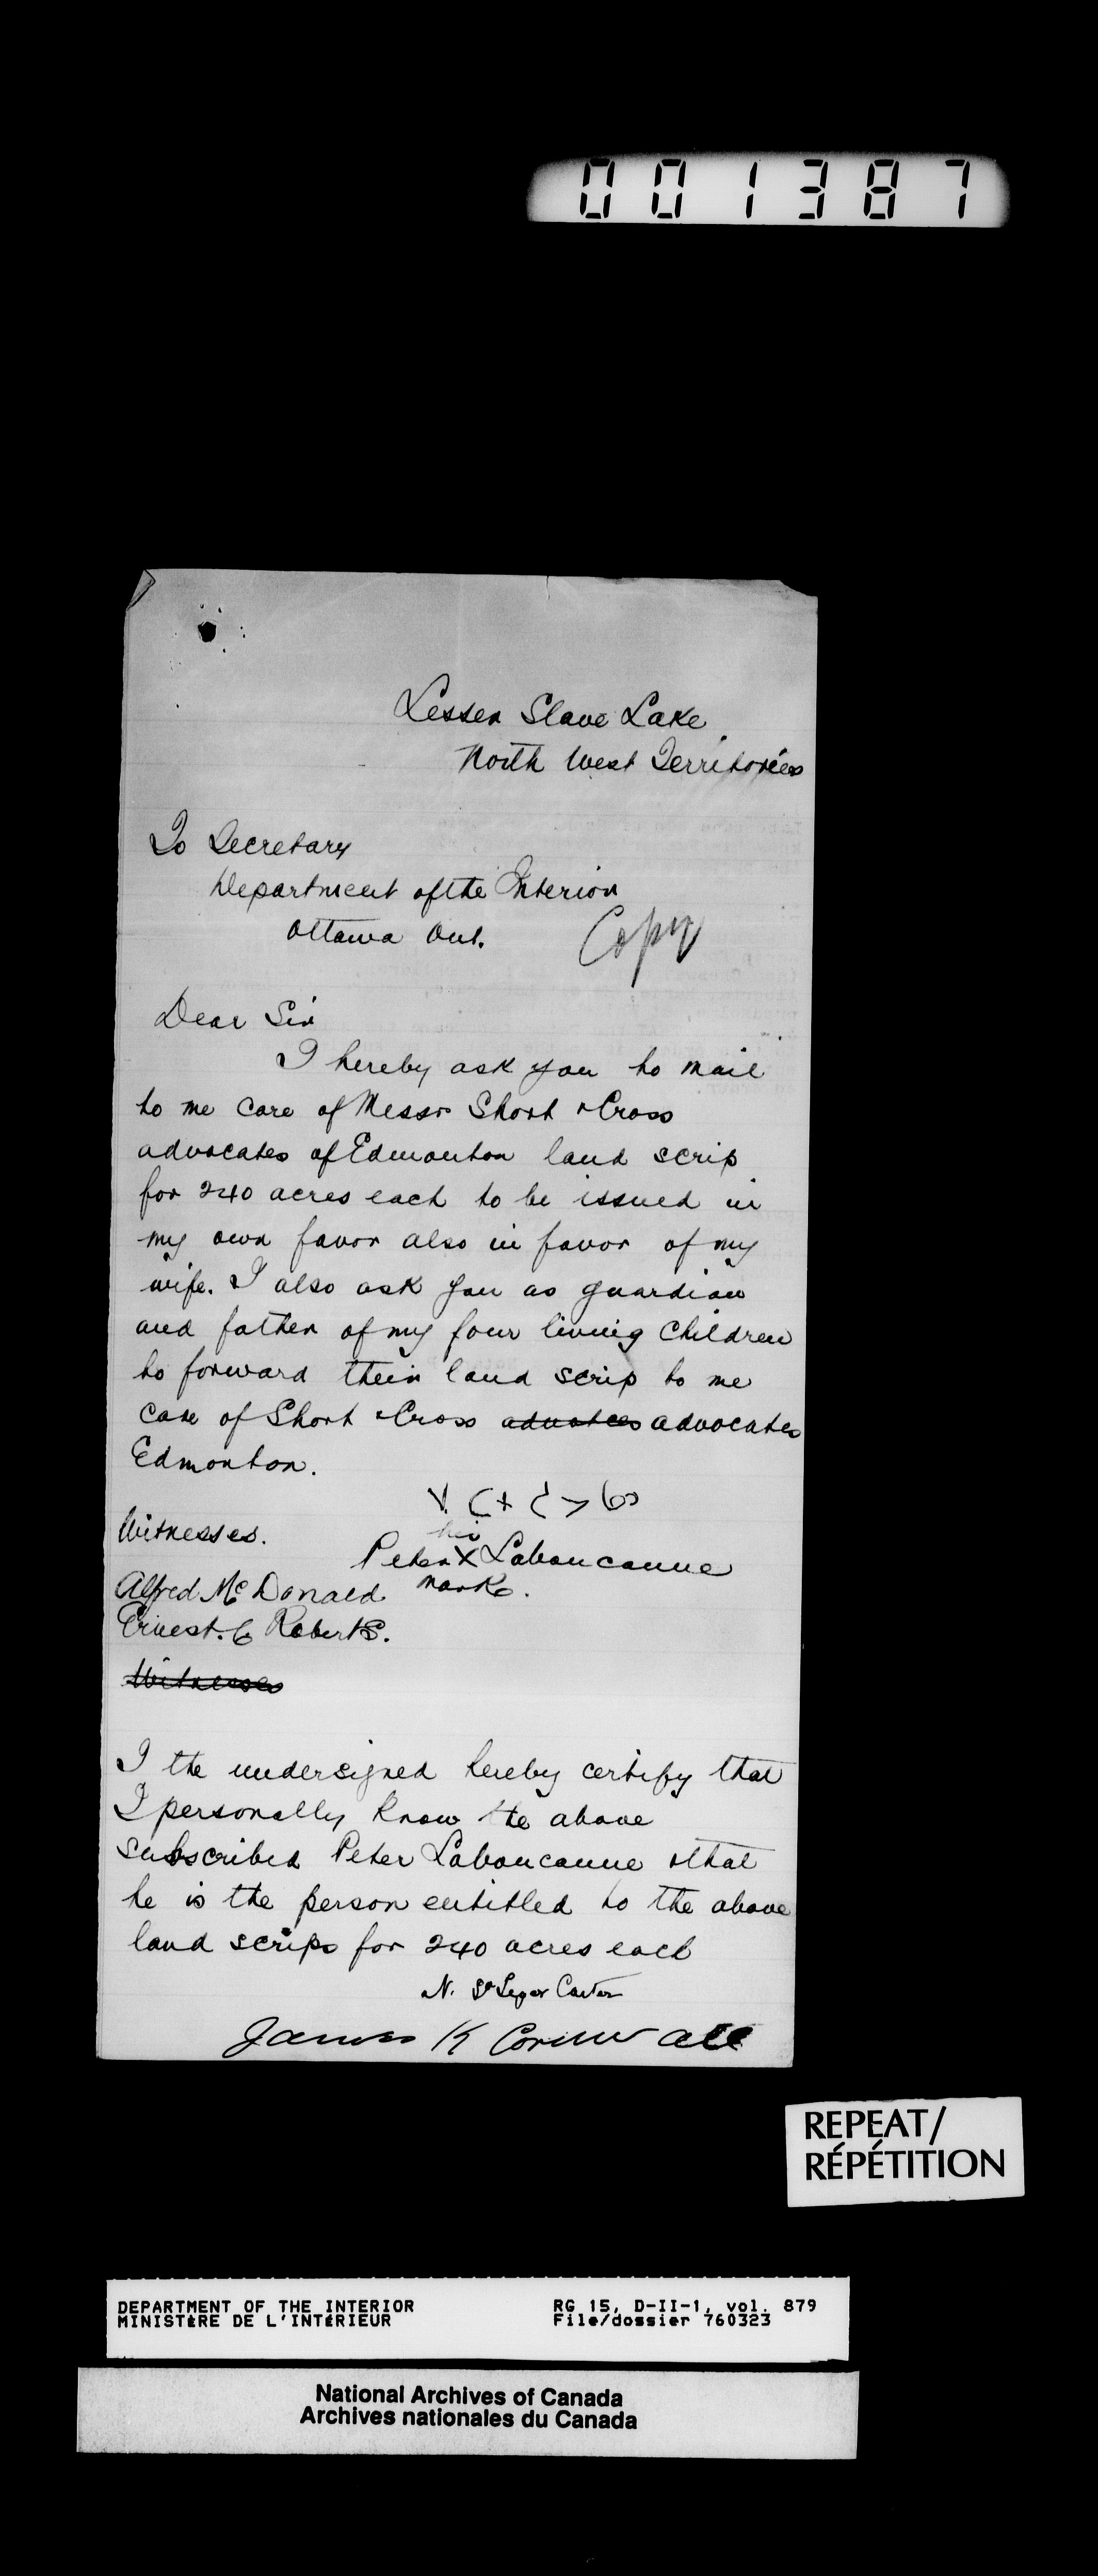 001387
Lesser Slave Lake
North West Territories
To Secretary
Department of the Interior
Ottawa Ont.
Copy
Dear Sir
I hereby ask you to mail
to me care of Messrs Short & Cross
advocates of Edmonton land scrip
for 240 acres each to be issued in
my own favor also in favor of my
wife. I also ask you as guardian
and father of my four living children
to forward their land scrip to me
care of Short & Cross advocates
Edmonton.
Witnesses.
his
Peter X Laboucanne
mark.
Alfred Mc Donald
Ernest. C Roberts.
Witnesses
I the undersigned hereby certify that
I personally know the above
subscribed Peter Laboucanne & that
he is the person entitled to the above
land scrips for 240 acres each
N. St Leger Carter
James K Cornwall
REPEAT/
RÉPÉTITION
DEPARTMENT OF THE INTERIOR RG 15, D-II-1, vol. 879
MINISTÈRE DE L'INTÉRIEUR File/dossier 760323
National Archives of Canada
Archives nationales du Canada